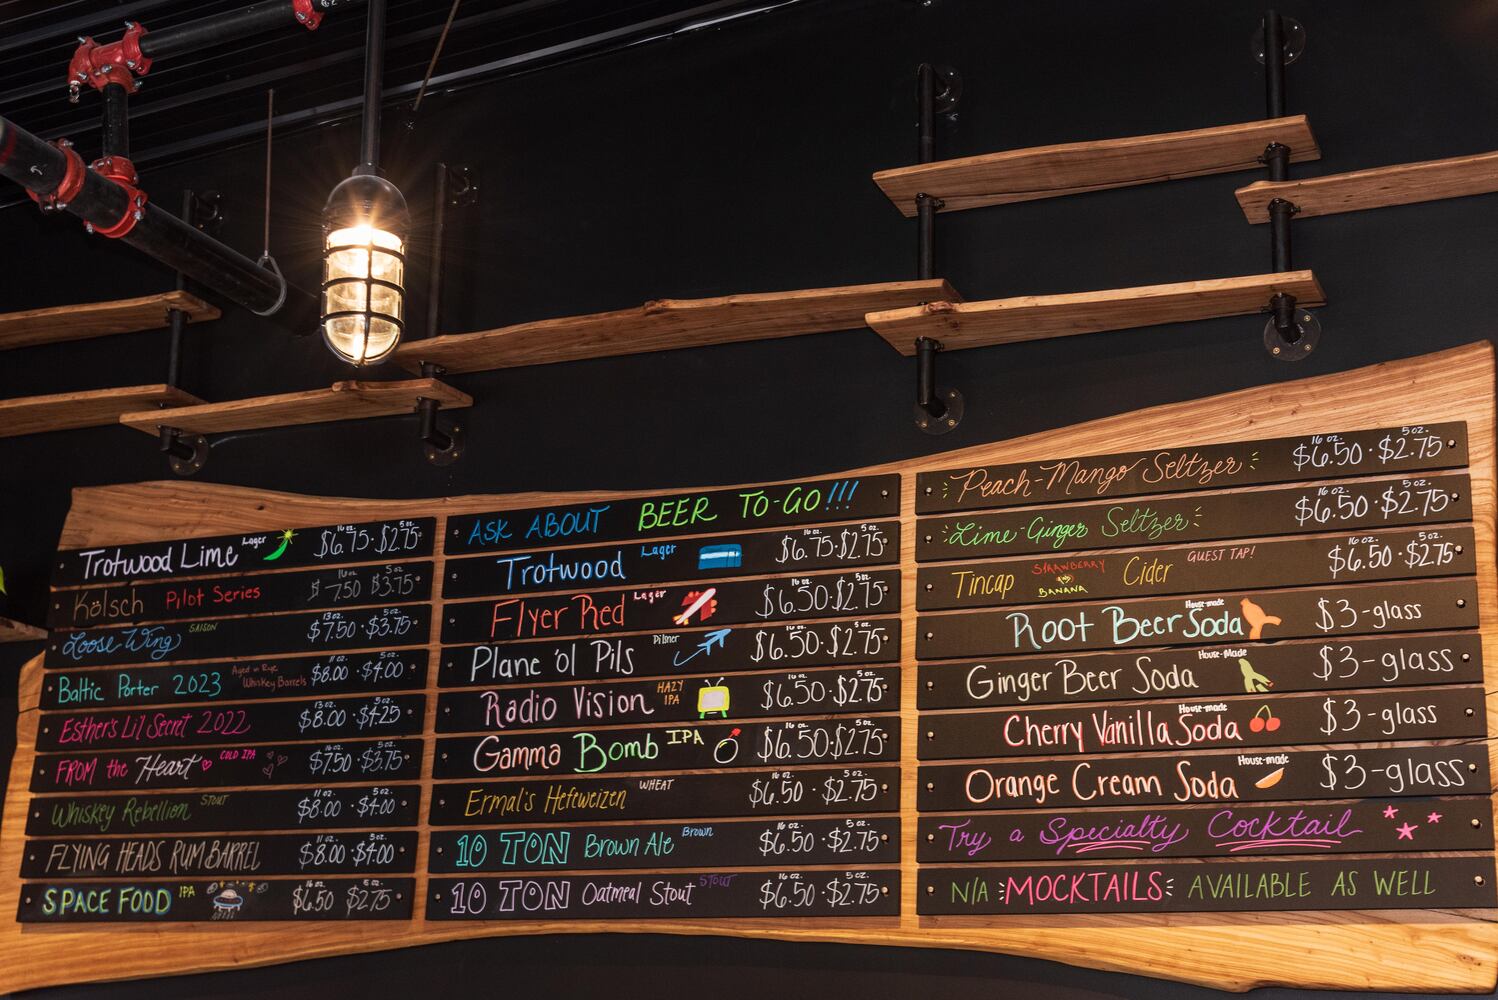 Trotwood Lime Lager 16 oz. $6.75 · 5 oz. $2.75
Kölsch Pilot Series 16 oz. $7.50 5 oz. $3.75
Loose Wing SAISON 13 oz. $7.50 · 5 oz. $3.75
Baltic Porter 2023 Aged in Rye Whiskey Barrels 11 oz. $8.00 · 5 oz. $4.00
Esther's Li'l Secret 2022 13 oz. $8.00 · 5 oz. $4.25
FROM the Heart COLD IPA 16 oz. $7.50 · 5 oz. $3.75
Whiskey Rebellion STOUT 11 oz. $8.00 · 5 oz. $4.00
FLYING HEADS RUM BARREL 11 oz. $8.00 · 5 oz. $4.00
SPACE FOOD IPA 16 oz. $6.50 5 oz. $2.75
ASK ABOUT BEER TO-GO!!!
Trotwood Lager 16 oz. $6.75 · 5 oz. $2.75
Flyer Red Lager 16 oz. $6.50 · 5 oz. $2.75
Plane 'ol Pils Pilsner 16 oz. $6.50 · 5 oz. $2.75
Radio Vision HAZY IPA 16 oz. $6.50 · 5 oz. $2.75
Gamma Bomb IPA 16 oz. $6.50 · 5 oz. $2.75
Ermal's Hefeweizen WHEAT 16 oz. $6.50 · 5 oz. $2.75
10 TON Brown Ale Brown 16 oz. $6.50 · 5 oz. $2.75
10 TON Oatmeal Stout STOUT 16 oz. $6.50 · 5 oz. $2.75
Peach-Mango Seltzer 16 oz. $6.50 · 5 oz. $2.75
Lime-Ginger Seltzer 16 oz. $6.50 · 5 oz. $2.75
Tincap STRAWBERRY BANANA Cider GUEST TAP! 16 oz. $6.50 · 5 oz. $2.75
Root Beer Soda House-made $3-glass
Ginger Beer Soda House-Made $3-glass
Cherry Vanilla Soda House-made $3-glass
Orange Cream Soda House-made $3-glass
Try a Specialty Cocktail
N/A MOCKTAILS AVAILABLE AS WELL